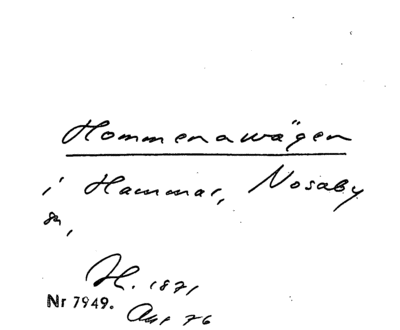 Hommenawägen
i Hammar, Nosaby
sn,
H. 1871
Nr 7949.
Aug 76